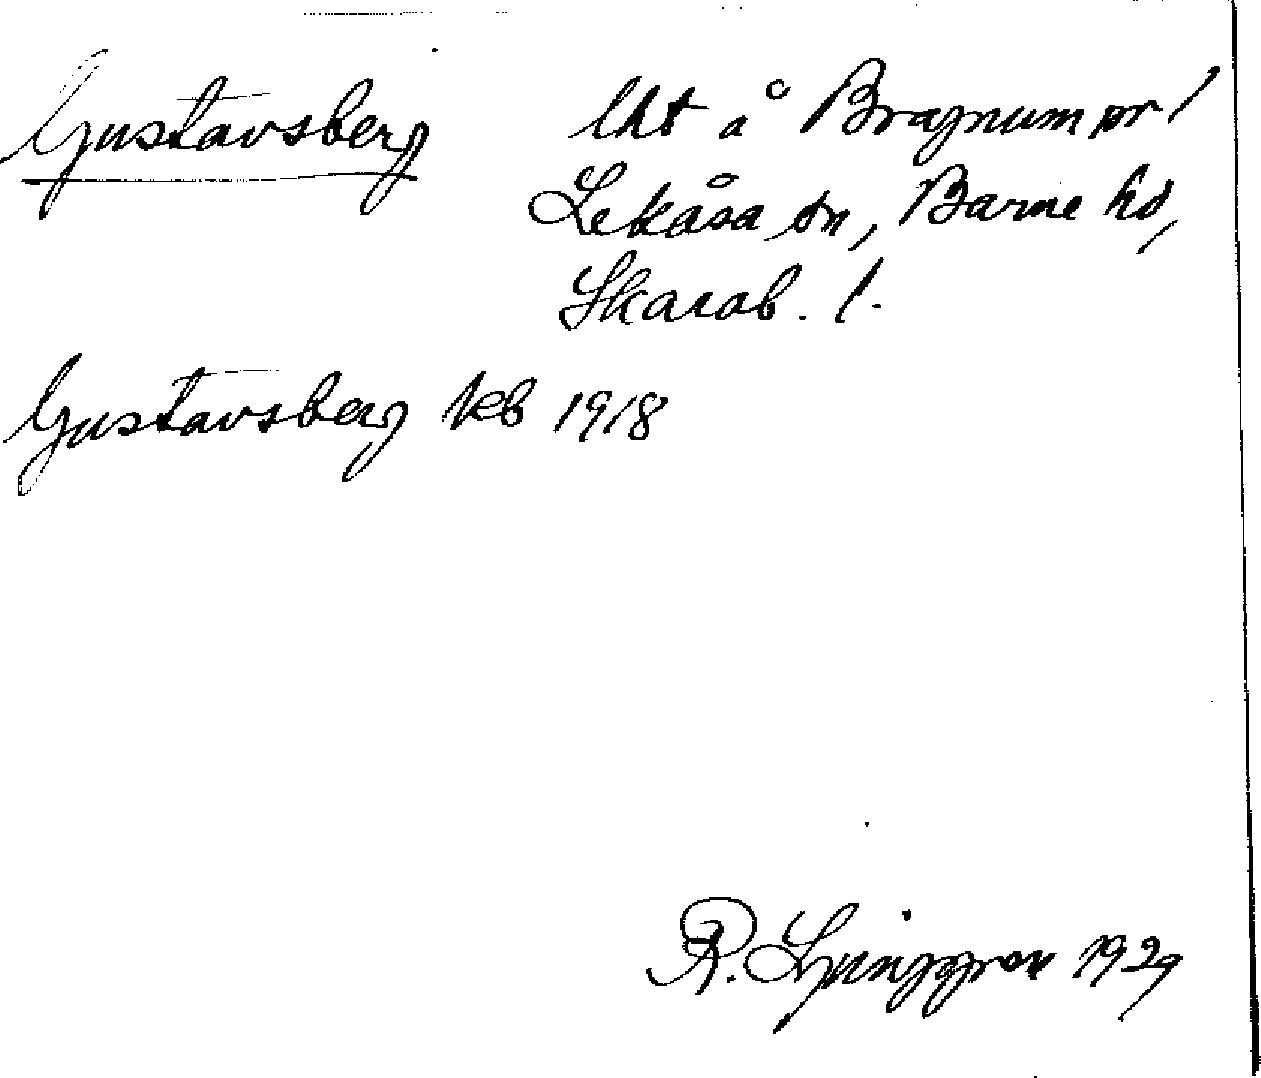 Gustavsberg lht å Bragnum pr 1
Lekåsa sn, Barne hd,
Skarab. l.
Gustavsberg kb 1918
R. Ljunggren 1929